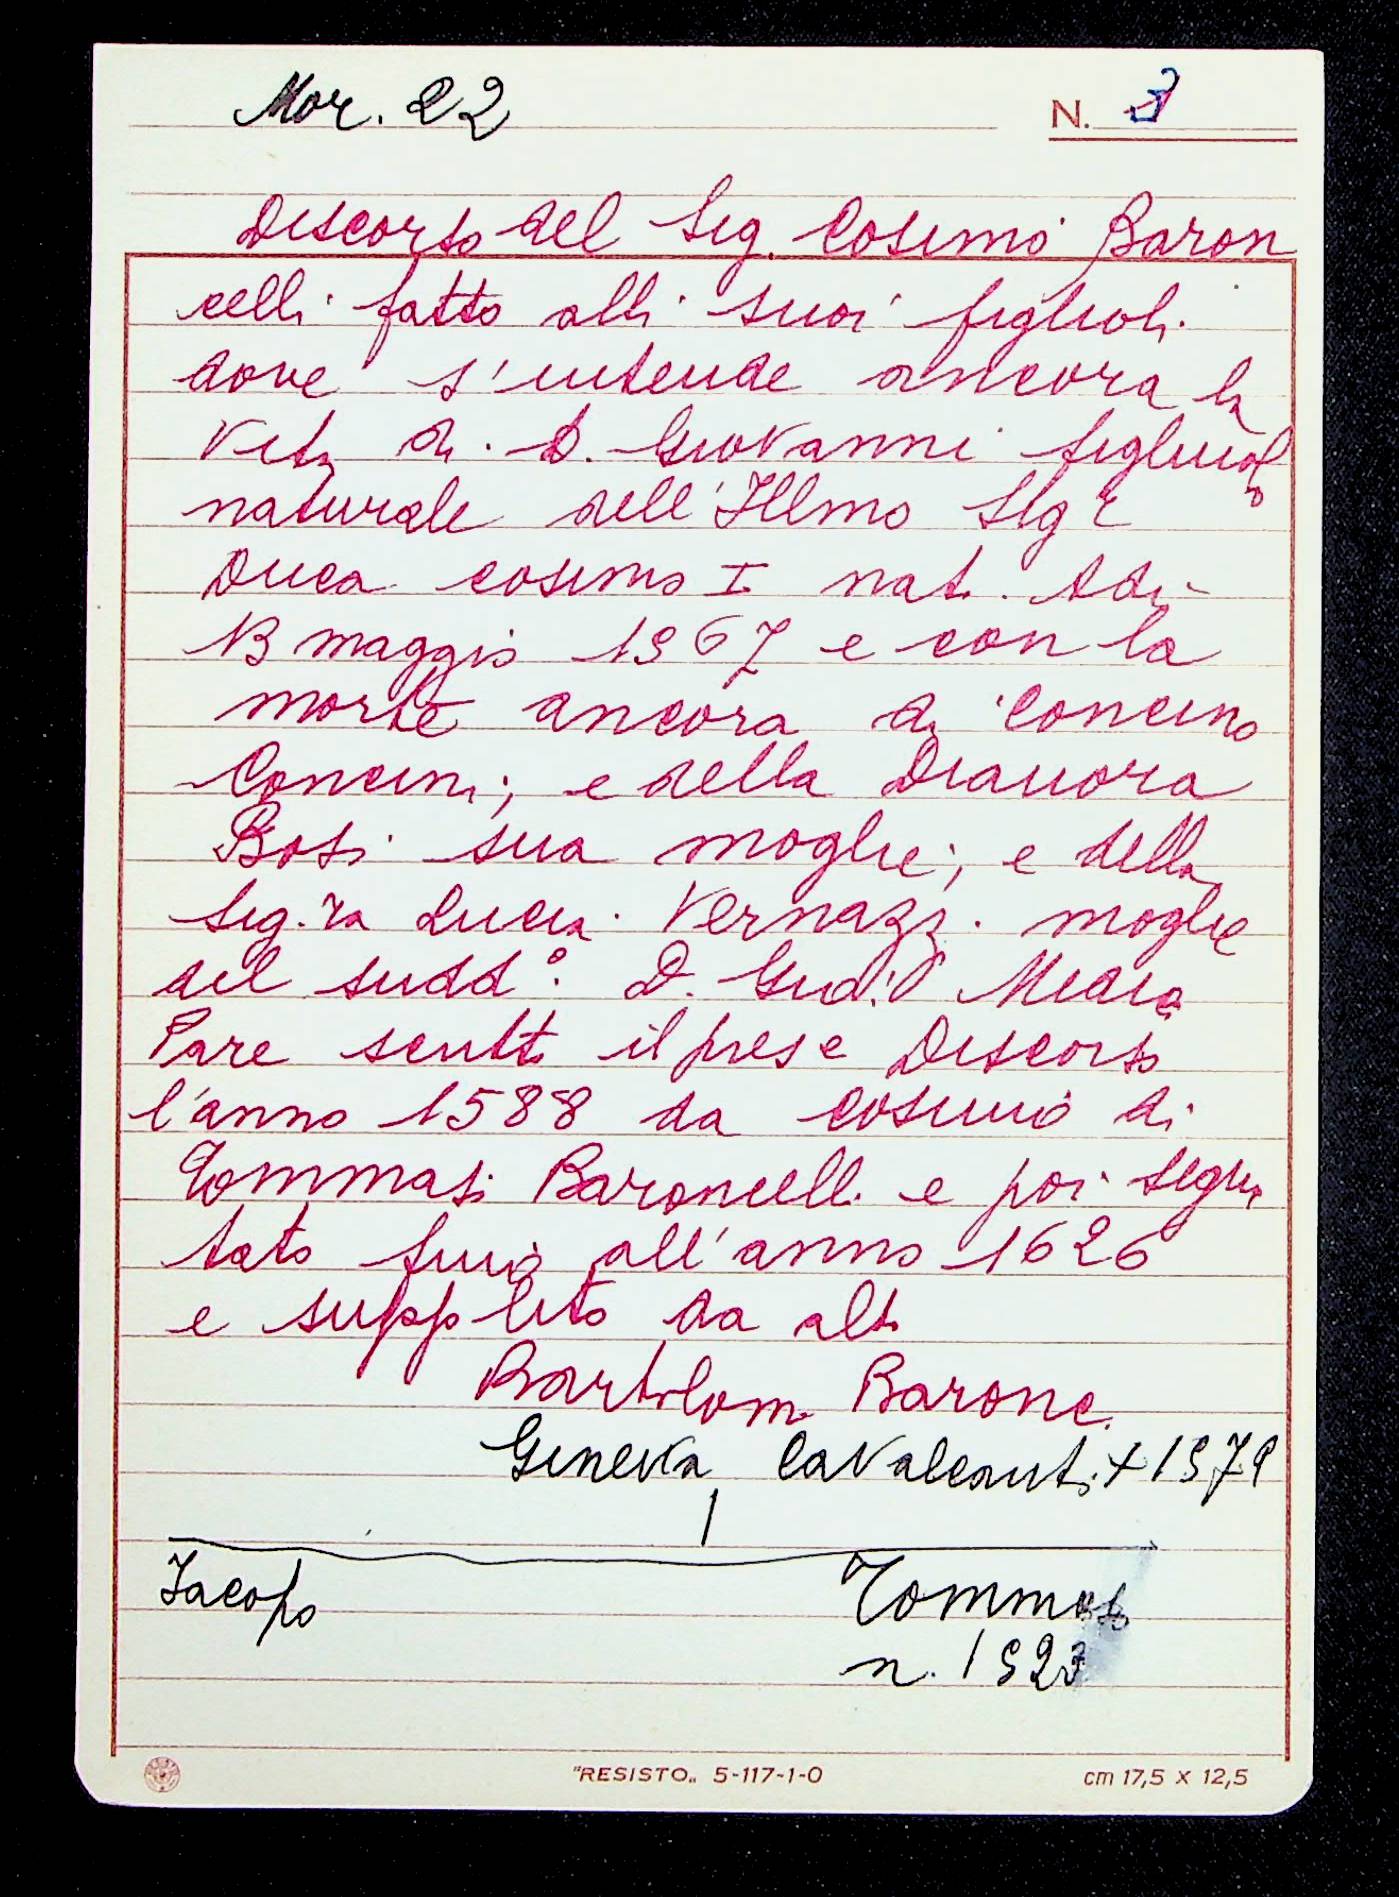 Mor. 22
N. 3
Discorso del Sig. Cosimo Baron
celli fatto alli suoi figlioli
dove s'intende ancora la
Vita di D. Giovanni figliuolo
naturale dell'Illmo Sigr
Duca Cosimo I nat. Adi
13 maggio 1567 e con la
morte ancora di Concino
Concini; e della Dianora
Bosi sua moglie; e della
Sig.ra Lucia Vernazz. moglie
del sudd°: D. Gio: Medici
Pare scritto il prese Discorso
l'anno 1588 da Cosimo di
Tommaso Baroncelli e poi segui
tato fino all'anno 1626
e supplito da alt.
Bartolom. Baronc.
Ginevra Cavalcanti + 1579
Jacopo Tommaso
n. 1527
"RESISTO" 5-117-1-0 cm 17,5 x 12,5